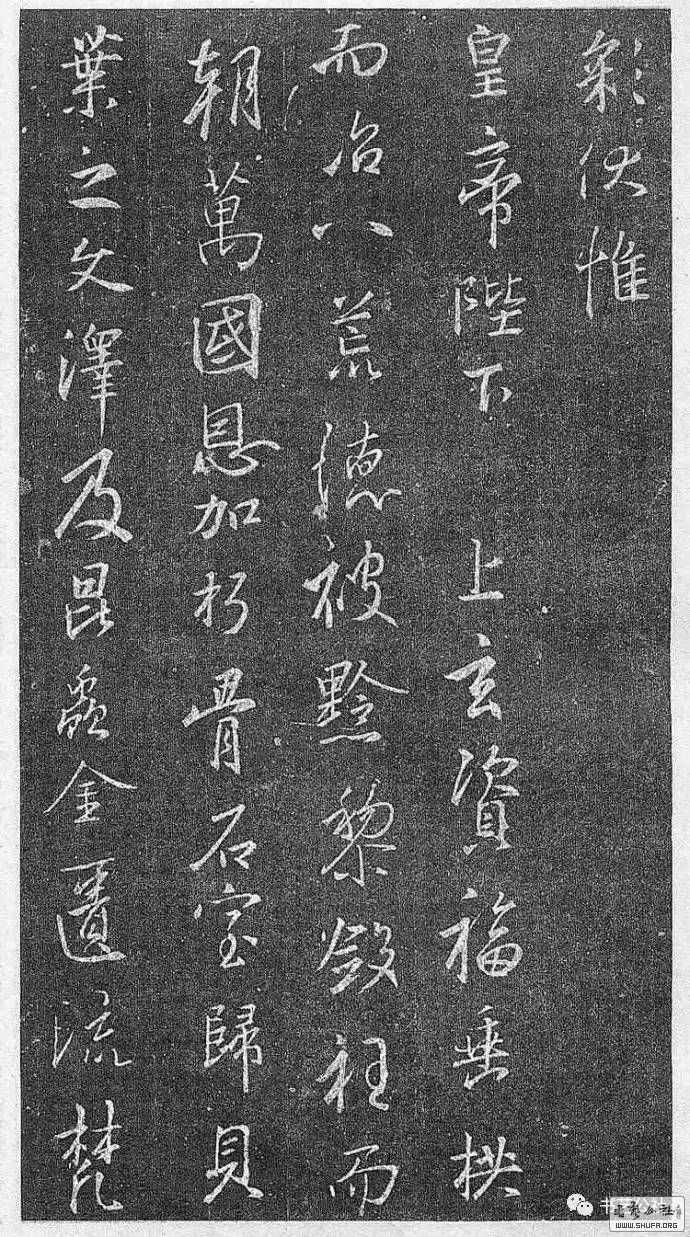 彩伏惟
皇帝陛下 上玄資福垂拱
而治八荒德被黔黎斂衽而
朝萬國恩加朽骨石室歸貝
葉之文澤及昆蟲金匱流梵
WWW.SHUFA.ORG